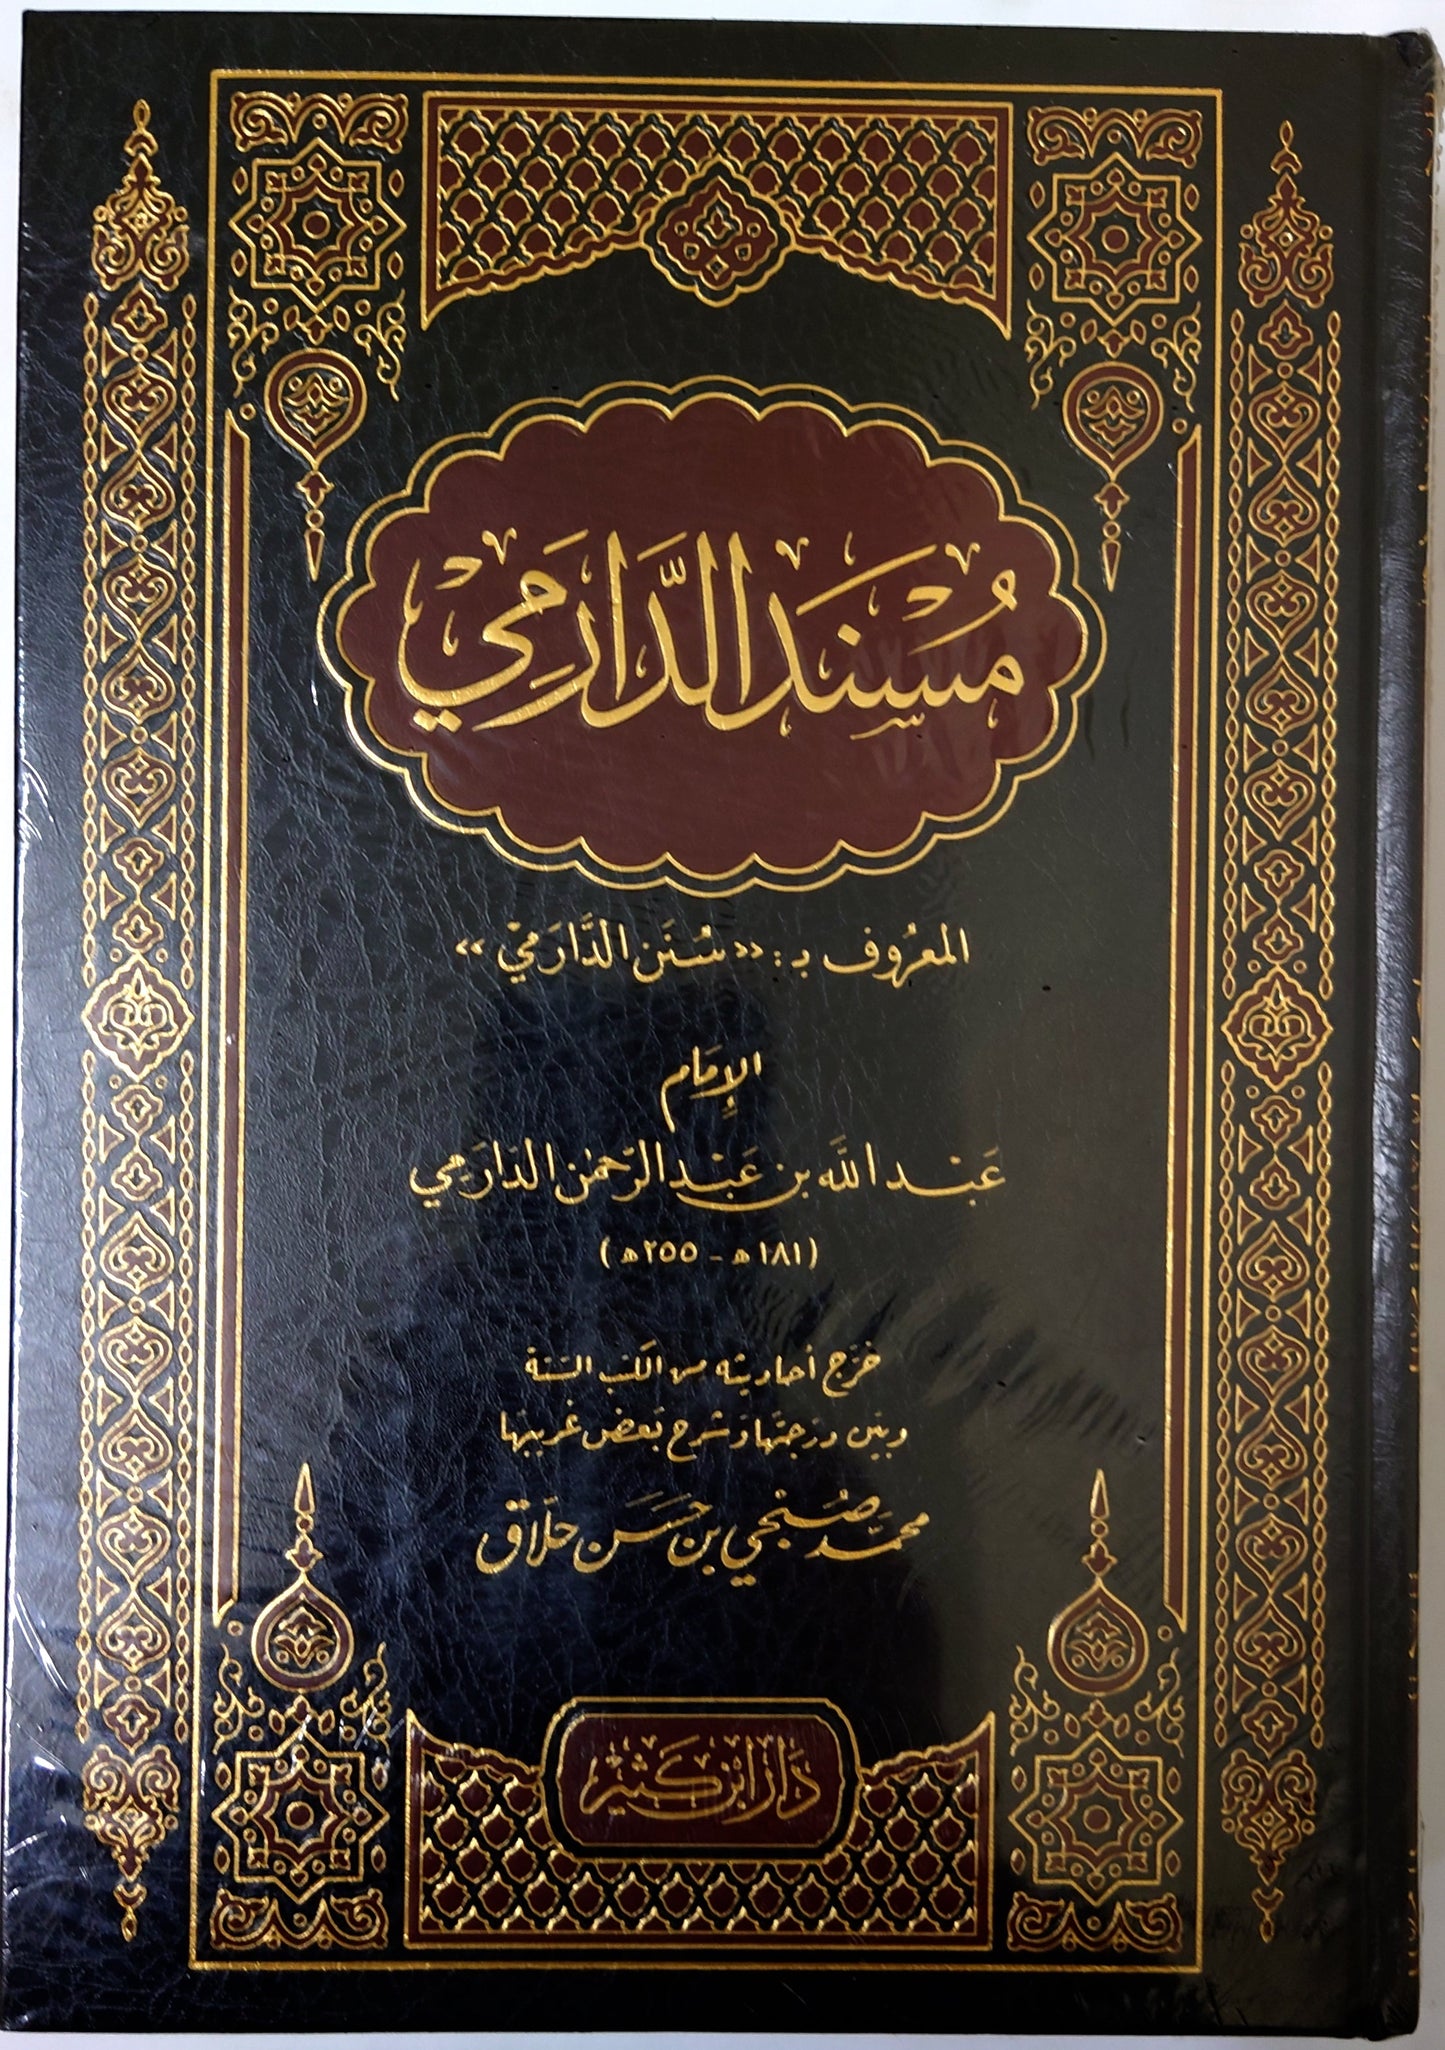 مُسْنَدُ الدَّارَمِيّ
المعرُوف بـ: «سُنَن الدَّارَمِيْ»
الإِمَام
عَبْد اللَّه بن عَبْد الرَّحمٰن الدَارَمِي
(١٨١ ﻫ - ٢٥٥ ﻫ)
خَرّج أحاديثه من الكتب السّتة
وبيّن درجتها وشرح بعض غريبها
محمّد صُبْحي بن حَسَن حلّاق
دَار ابن كَثير